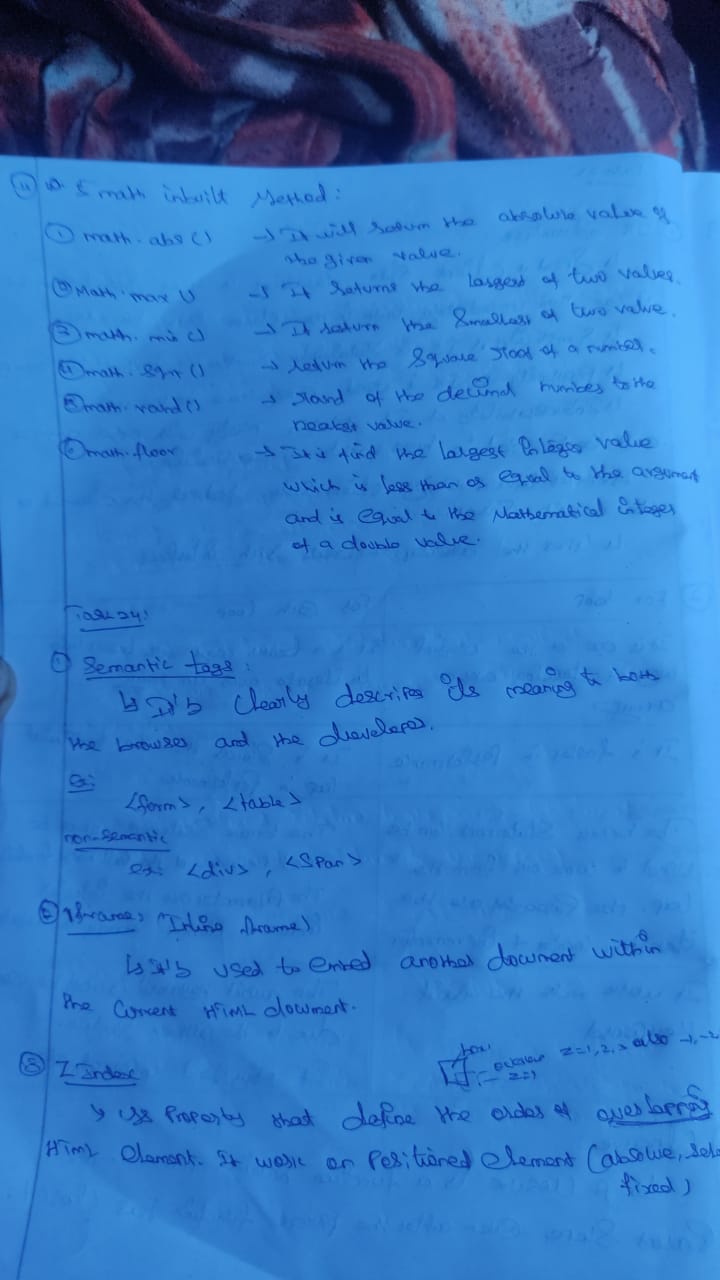 11 5 math inbuilt Method:
① math.abs() → It will return the absolute value of
the given value.
② Math.max() → It returns the largest of two values.
③ math.min() → It return the Smallest of two value.
④ math.sqrt() → return the Square root of a number.
⑤ math.round() → round of the decimal number to the
nearest value.
⑥ math.floor → It is find the largest Integer value
which is less than or equal to the argument
and is equal to the Mathematical integer
of a double value.
Task 24:
① Semantic tags:
↳ It's clearly describes its meaning to both
the browser and the developer.
Ex:
<form>, <table>
non-semantic
ex: <div>, <Span>
② Iframe: (Inline frame)
↳ It's used to embed another document within
the Current HTML document.
③ Z Index
box
overlap z=1,2,3 also -1,-2
z=1
Property that define the order of overlapping
HTML element. It work on Positioned element (absolue, rela
fixed)